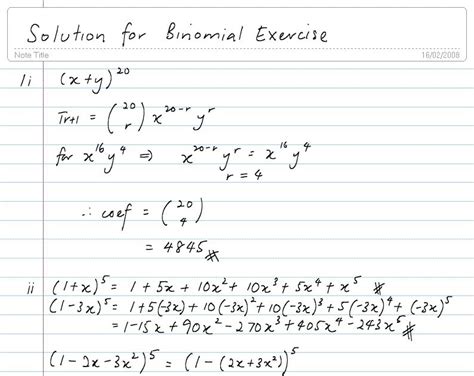 Solution for Binomial Exercise
Note Title
16/02/2008
1i (x+y)^20
Tr+1 = (20 r) x^20-r y^r
for x^16 y^4 ⇒ x^20-r y^r = x^16 y^4
r = 4
∴ coef = (20 4)
= 4845 #
ii (1+x)^5 = 1 + 5x + 10x^2 + 10x^3 + 5x^4 + x^5 #
(1-3x)^5 = 1 + 5(-3x) + 10(-3x)^2 + 10(-3x)^3 + 5(-3x)^4 + (-3x)^5
= 1-15x + 90x^2 - 270x^3 + 405x^4 - 243x^5 #
(1-2x-3x^2)^5 = (1-(2x+3x^2))^5